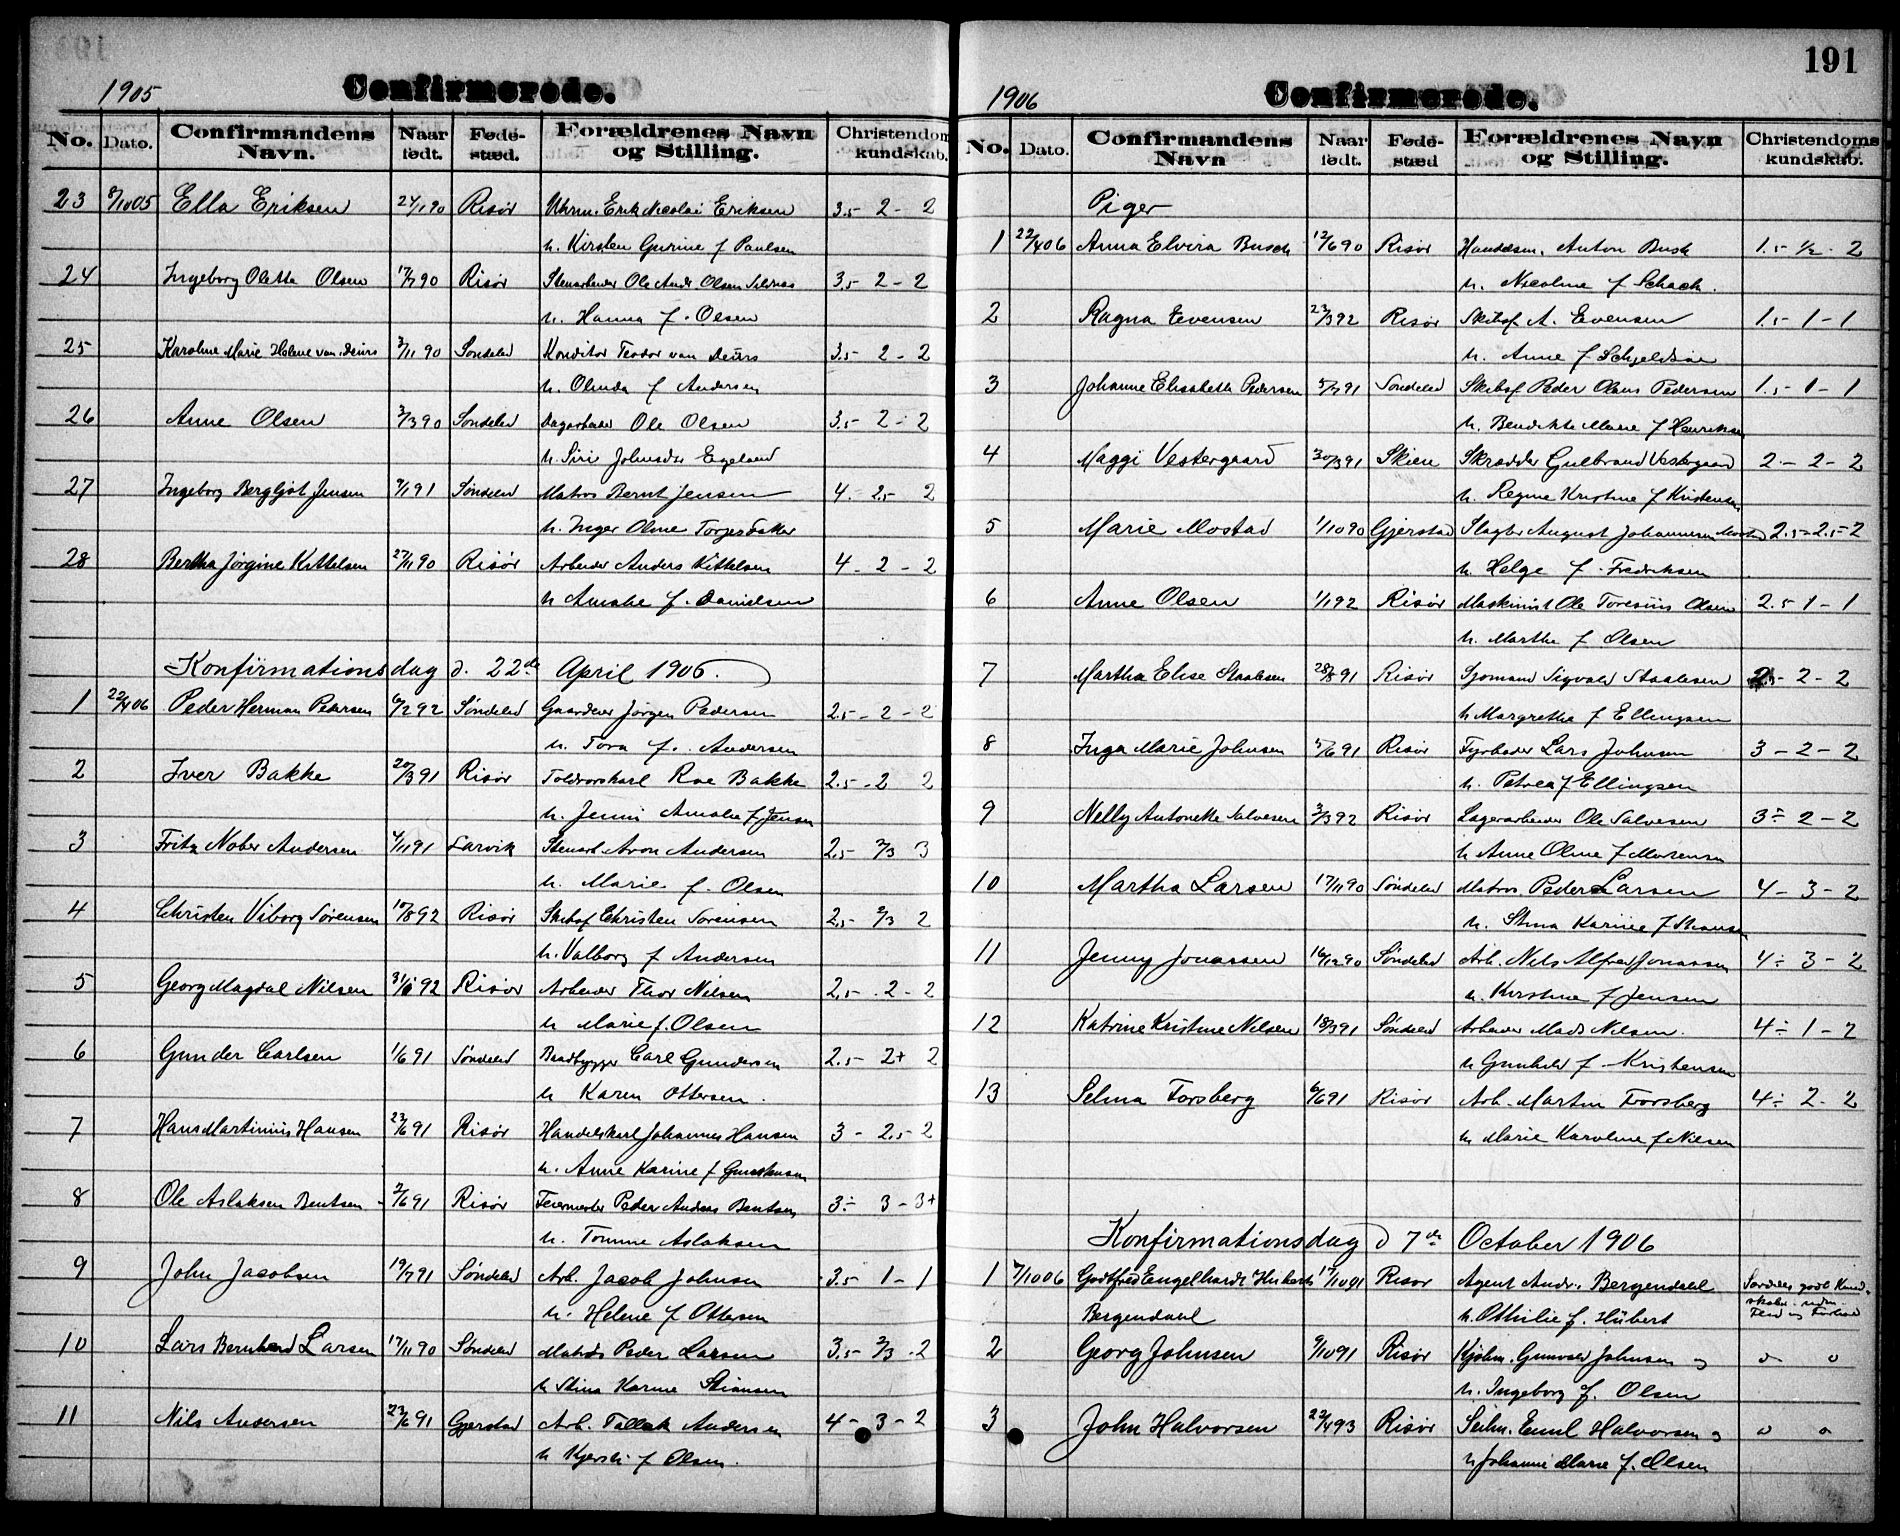 1905 Confirmerede.
No. Dato. Confirmandens Navn. Naar født. Føde-sted. Forældrenes Navn og Stilling. Christendoms kundskab.
23 8/10 05 Ella Eriksen 24/1 90 Risør Uhrm. Erik Nicolai Eriksen 3.5 - 2 - 2
h. Kirsten Gurine f Paulsen
24 Ingeborg Oletta Olsen 17/7 90 Risør Stenarbeider Ole Andr. Olsen 3.5 - 2 - 2
h. Hanna f. Olsen
25 Karoline Marie Helene van Deurs 3/11 90 Søndeled Konditor Teodor van Deurs 3.5 - 2 - 2
h. Olinda f Andersen
26 Anne Olsen 3/3 90 Søndeled Dagarbeider Ole Olsen 3.5 - 2 - 2
h. Siri Johnsdtr Egeland
27 Ingeborg Bergljot Jensen 9/1 91 Søndeled Matros Bernt Jensen 4 - 2.5 - 2
h. Inger Oline Torjesdatter
28 Bertha Jörgine Kittelsen 27/11 90 Risør Arbeider Anders Kittelsen 4 - 2 - 2
h Amalie f. Danielsen
Konfirmationsdag d. 22de April 1906.
1 22/4 06 Peder Herman Pedersen 6/2 92 Søndeled Gaardeier Jørgen Pedersen 2.5 - 2 - 2
h. Tora f. Andersen
2 Iver Bakke 20/3 91 Risør Toldvorskarl Roe Bakke 2.5 - 2 2
h. Jenni Amalie f Jensen
3 Fritz Nober Andersen 4/11 91 Larvik Stenarb. Aron Andersen 2.5 - 2/3 3
h. Marie f. Olsen
4 Christen Viborg Sørensen 18/8 92 Risør Skibsf Christen Sørensen 2.5 - 2/3 2
h. Valborg f Andersen
5 Georg Magdal Nilsen 31/1 92 Risør Arbeider Thor Nilsen 2.5 - 2 - 2
h Marie f. Olsen
6 Gunder Carlsen 1/6 91 Søndeled Baadbygger Carl Gundersen 2.5 - 2+ 2
h Karen Ottersen.
7 Hans Martinius Hansen 23/6 91 Risør Handelskarl Johannes Hansen 3 - 2.5 - 2
h. Anne Karine f
8 Ole Aslaksen Bentsen 2/6 91 Risør Feiermester Peder Anders Bentsen 3÷ 3 - 3+
h. Tomine Aslaksen
9 John Jacobsen 19/7 91 Søndeled Arb. Jacob Johnsen 3.5 1 - 1
h. Helene f Ottersen
10 Lars Bernhard Larsen 17/11 90 Søndeled Matros Peder Larsen 3.5 - 2/3 - 2
h Stina Karine Stiansen
11 Nils Andersen 23/6 91 Gjerstad Arb. Tallak Andersen 4 - 3 - 2
h Kjersti f Olsen.
191
1906 Confirmerede.
No. Dato. Confirmandens Navn Naar født. Føde-sted Forældrenes Navn og Stilling. Christendoms kundskab.
Piger
1 22/4 06 Anna Elvira Busch 12/6 90 Risør Handelsm. Anton Busch 1.5 - 1/2 - 2
h. Nicoline f Schack.
2 Ragna Evensen 23/3 92 Risør Skibsf A. Evensen 1.5 - 1 - 1
h. Anne f
3 Johanne Elisabeth Pedersen 5/7 91 Søndeled Skibsf Peder Olaus Pedersen 1.5 - 1 - 1
h. Bendikte Marie f Henriksen
4 Maggi Vestergaard 30/3 91 Skien Skrædder Gulbrand Vestergaard 2 - 2 - 2
h. Regine Kristine f Kristensen
5 Marie Mostad 1/10 90 Gjerstad Slagter August Johannesen Mostad 2.5 - 2.5 - 2
h. Helge f. Fredriksen
6 Anne Olsen 1/1 92 Risør Maskinist Ole Toresius Olsen 2.5 1 - 1
h. Marthe f Olsen
7 Martha Elise Staalesen 28/8 91 Risør Sjomand Sigvald Staalesen 2.5 - 2 - 2
h Margrethe f Ellingsen
8 Inga Marie Johnsen 5/6 91 Risør Fyrbøder Lars Johnsen 3 - 2 - 2
h. Petrea f Ellingsen
9 Nelly Antonette Salvesen 3/3 92 Risør Lagerarbeider Ole Salvesen 3÷ 2 - 2
h Anne Oline f Mortensen
10 Martha Larsen 17/11 90 Søndeled Matros Peder Larsen 4 - 3 - 2
h. Stina Karine f Stiansen
11 Jenny Jonassen 16/12 90 Søndeled Arb. Nils Alfred Jonassen 4÷ 3 - 2
h. Kirstine f Jensen
12 Katrine Kristine Nilsen 18/3 91 Søndeled Arbeider Mads Nilsen. 4÷ 1 - 2
h Gunhild f Kristensen
13 Selma Forsberg 6/6 91 Risør Arb. Martin Forsberg 4÷ 2 - 2
h Marie Karoline f Nilsen
Konfirmationsdag d 7de October 1906
1 7/10 06 Godtfred Engelhardt Hübert 17/10 91 Risør Agent Andr. Bergendahl Særdeles godt Kund-
Bergendahl h. Othilie f. Hübert skaber. uden Flid og Forhold
2 Georg Johnsen 9/10 91 Risør Kjøbm. Gunvald Johnsen og o o
h. Ingeborg f. Olsen
3 John Halvorsen 22/4 93 Risør Seilm. Emil Halvorsen og o o
h Johanne Marie f. Olsen